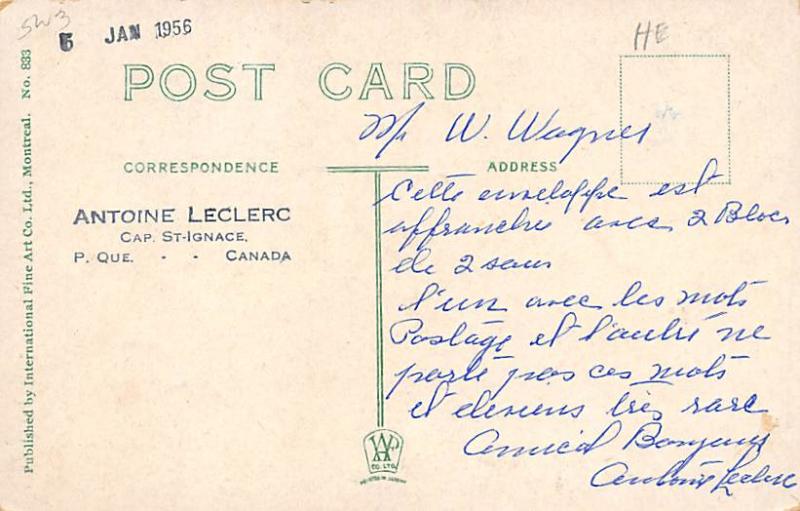 5W3
5 JAN 1956
HE
POST CARD
Mr W. Wagner
CORRESPONDENCE
ADDRESS
ANTOINE LECLERC
CAP. ST-IGNACE,
P. QUE. - - CANADA
Cette enveloppe est
affranchie avec 2 Blocs
de 2 sous
l'un avec les mots
Postage et l'autre ne
porte pas ces mots
et deviens très rare
Amical Bonjour
Antoine Leclerc
Published by International Fine Art Co. Ltd., Montreal. No. 833
CO. LTD.